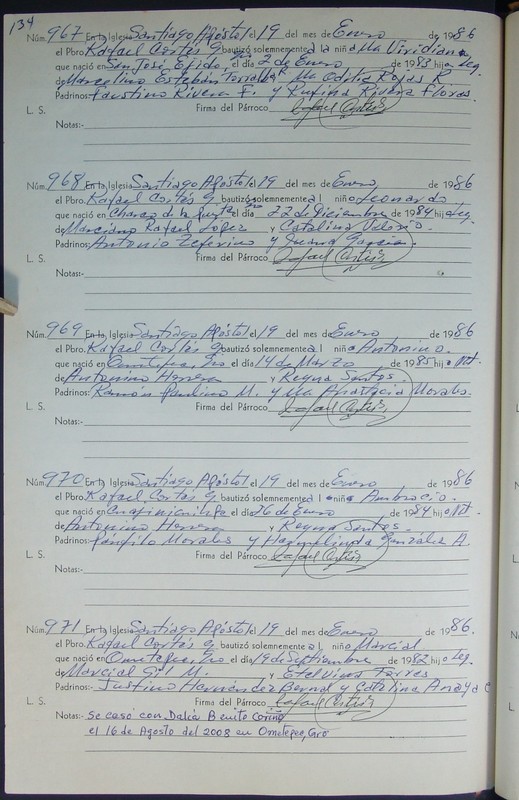 134
Núm. 967 En la Iglesia Santiago Apóstol el 19 del mes de Enero de 1986
el Pbro. Rafael Cortés G. bautizó solemnemente a la niña Ma Viridiana
que nació en San José Ejido, el día 2 de Enero de 1983 hija Leg.
de Marcelino Esteban y Ma Odilia Rojas R.
Padrinos: Faustino Rivera F. y Rufina Rivera Flores.
L. S. Firma del Párroco Rafael Cortés
Notas:
Núm. 968 En la Iglesia Santiago Apóstol el 19 del mes de Enero de 1986
el Pbro. Rafael Cortés G. bautizó solemnemente a l niño Leonardo
que nació en Charco de la Puerta el día 22 de Diciembre de 1984 hijo Leg.
de Marciano Rafael López y Catalina
Padrinos: Antonio Zeferino y Juana García.
L. S. Firma del Párroco Rafael Cortés
Notas:
Núm. 969 En la Iglesia Santiago Apóstol el 19 del mes de Enero de 1986
el Pbro. Rafael Cortés G. bautizó solemnemente a l niño Antonino.
que nació en Ometepec, Gro el día 14 de Marzo de 1985 hijo Nat.
de Antonino Herrera y Reyna Santos.
Padrinos: Ramón Paulino M. y Ma Anastacia Morales.
L. S. Firma del Párroco Rafael Cortés
Notas:
Núm. 970 En la Iglesia Santiago Apóstol el 19 del mes de Enero de 1986
el Pbro. Rafael Cortés G. bautizó solemnemente a l niño Ambrocio.
que nació en Cuajinicuilapa el día 26 de Enero de 1984 hijo Nat
de Antonino Herrera y Reyna Santos.
Padrinos: Panfilo Morales y González A.
L. S. Firma del Párroco Rafael Cortés
Notas:
Núm. 971 En la Iglesia Santiago Apóstol el 19 del mes de Enero de 1986.
el Pbro. Rafael Cortés G. bautizó solemnemente a l niño Marcial
que nació en Ometepec, Gro el día 19 de Septiembre de 1982 hijo Leg.
de Marcial Gil M. y Etelvina Torres
Padrinos: Justino Hernández Bernal y Catalina Anaya C
L. S. Firma del Párroco Rafael Cortés
Notas: Se casó con Dalia Benito
el 16 de Agosto del 2008 en Ometepec, Gro